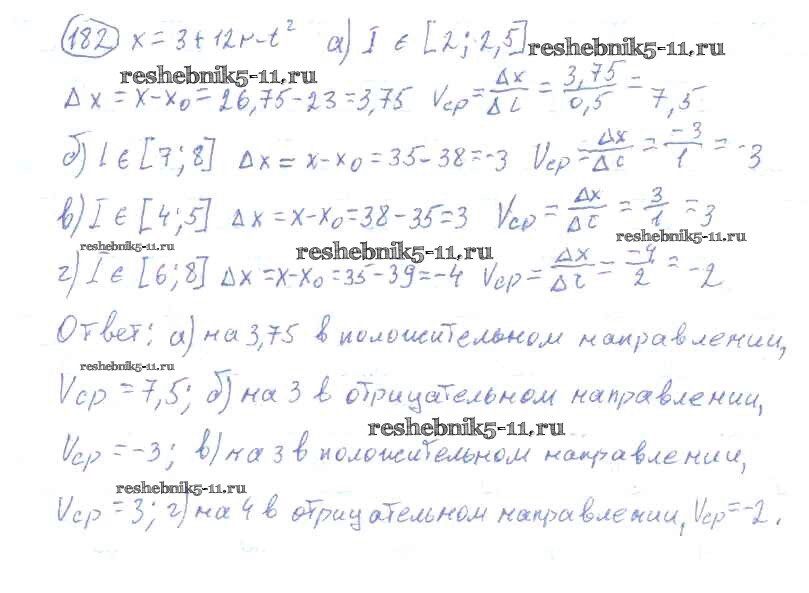 182 x = 3 + 12t - t² а) I ∈ [2; 2,5]
reshebnik5-11.ru
reshebnik5-11.ru
Δx = x - x₀ = 26,75 - 23 = 3,75 Vср = Δx/Δt = 3,75/0,5 = 7,5
б) I ∈ [7; 8] Δx = x - x₀ = 35 - 38 = -3 Vср = Δx/Δt = -3/1 = -3
в) I ∈ [4; 5] Δx = x - x₀ = 38 - 35 = 3 Vср = Δx/Δt = 3/1 = 3
reshebnik5-11.ru
reshebnik5-11.ru
reshebnik5-11.ru
г) I ∈ [6; 8] Δx = x - x₀ = 35 - 39 = -4 Vср = Δx/Δt = -4/2 = -2
Ответ: а) на 3,75 в положительном направлении,
reshebnik5-11.ru
Vср = 7,5; б) на 3 в отрицательном направлении,
reshebnik5-11.ru
Vср = -3; в) на 3 в положительном направлении,
reshebnik5-11.ru
Vср = 3; г) на 4 в отрицательном направлении, Vср = -2.